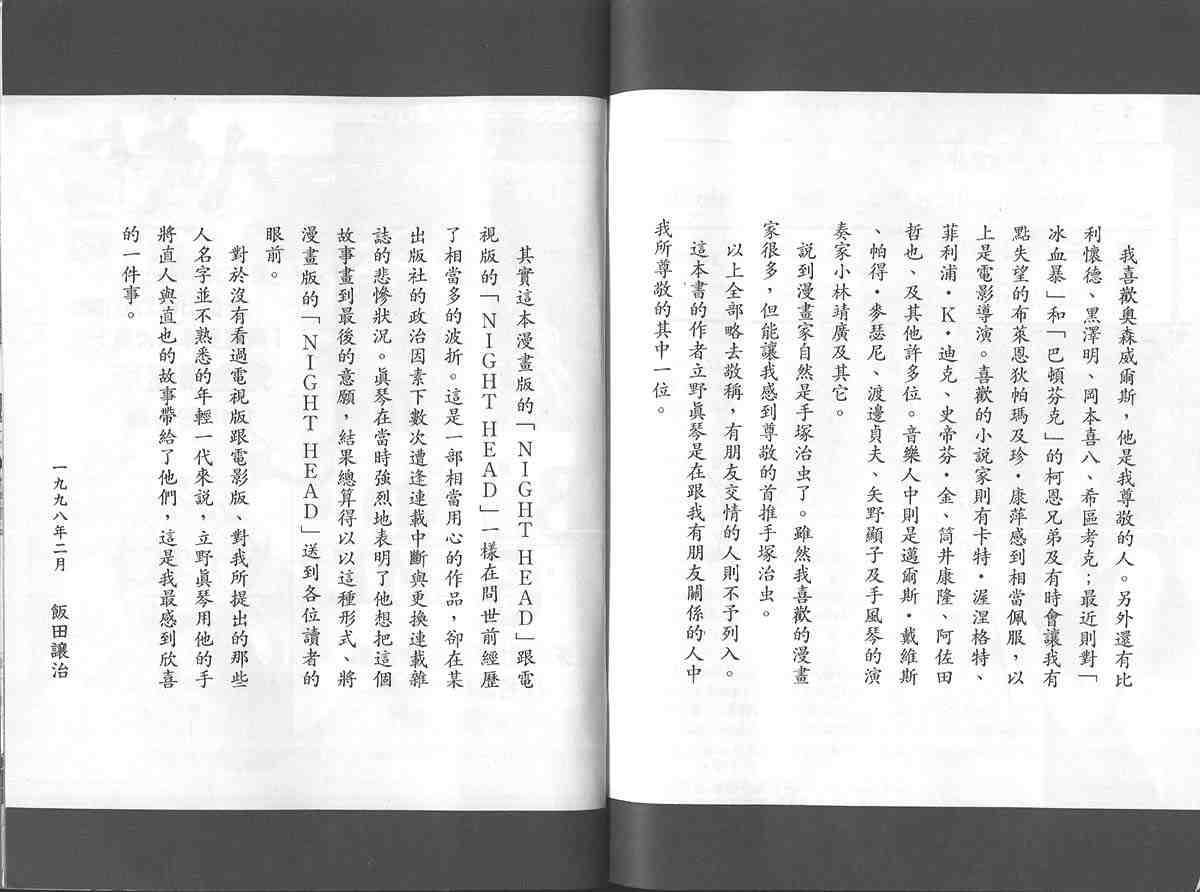 我喜歡奧森威爾斯，他是我尊敬的人。另外還有比
利懷德、黑澤明、岡本喜八、希區考克；最近則對「
冰血暴」和「巴頓芬克」的柯恩兄弟及有時會讓我有
點失望的布萊恩狄帕瑪及珍·康萍感到相當佩服，以
上是電影導演。喜歡的小說家則有卡特·渥涅格特、
菲利浦·K·迪克、史帝芬·金、筒井康隆、阿佐田
哲也、及其他許多位。音樂人中則是邁爾斯·戴維斯
、帕得·麥瑟尼、渡邊貞夫、矢野顯子及手風琴的演
奏家小林靖廣及其它。
說到漫畫家自然是手塚治虫了。雖然我喜歡的漫畫
家很多，但能讓我感到尊敬的首推手塚治虫。
以上全部略去敬稱，有朋友交情的人則不予列入。
這本書的作者立野眞琴是在跟我有朋友關係的人中
我所尊敬的其中一位。
其實這本漫畫版的「NIGHT HEAD」跟電
視版的「NIGHT HEAD」一樣在問世前經歷
了相當多的波折。這是一部相當用心的作品，卻在某
出版社的政治因素下數次遭逢連載中斷與更換連載雜
誌的悲慘狀況。眞琴在當時強烈地表明了他想把這個
故事畫到最後的意願，結果總算得以以這種形式、將
漫畫版的「NIGHT HEAD」送到各位讀者的
眼前。
對於沒有看過電視版跟電影版、對我所提出的那些
人名字並不熟悉的年輕一代來說，立野眞琴用他的手
將直人與直也的故事帶給了他們，這是我最感到欣喜
的一件事。
一九九八年二月　飯田讓治